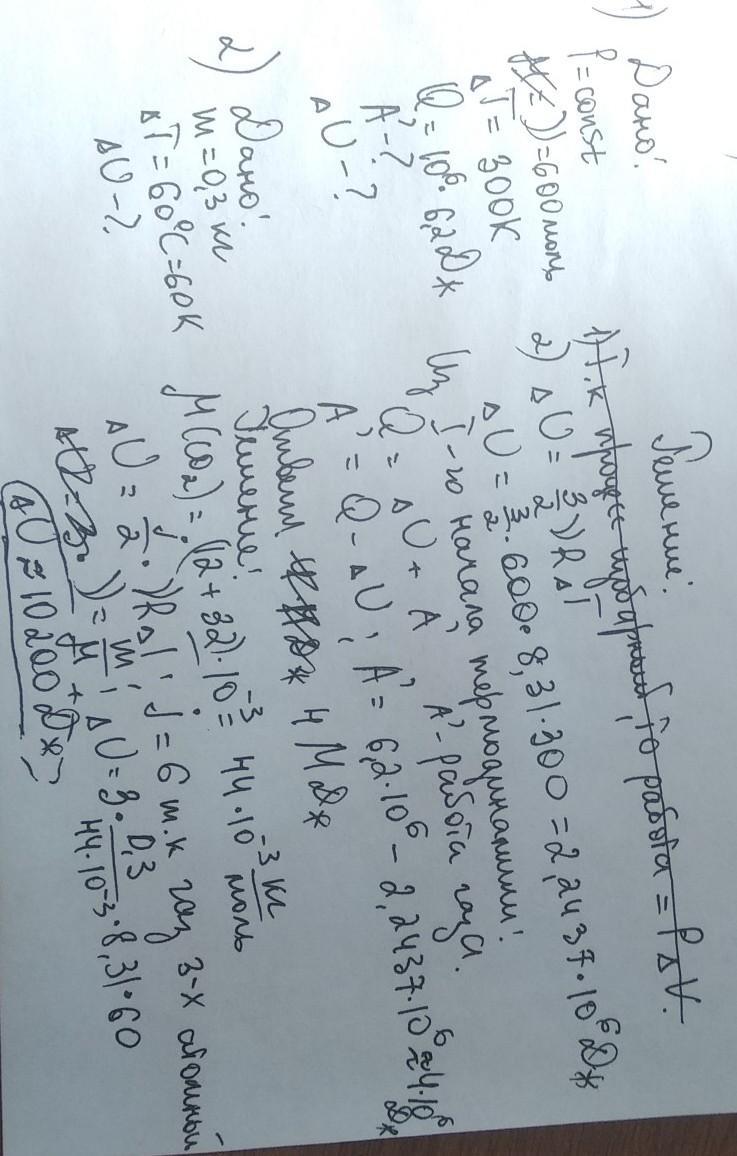 1) Дано:
P = const
ν = 600 моль
ΔT = 300K
Q = 10⁶·6,2Дж
A' - ?
ΔU - ?
Решение:
1) Т.к процесс изобарный, то работа = PΔV.
2) ΔU = 3/2 νRΔT
ΔU = 3/2·600·8,31·300 = 2,2437·10⁶Дж
Из I-го начала термодинамики:
Q = ΔU + A', A'- работа газа.
A' = Q - ΔU; A' = 6,2·10⁶ - 2,2437·10⁶ ≈ 4·10⁶
Дж
Ответ 4 МДж
2) Дано:
m = 0,3 кг
ΔT = 60°C = 60K
ΔU - ?
Решение:
M(CO₂) = (12 + 32)·10⁻³ = 44·10⁻³ кг/моль
ΔU = j/2·νRΔT; j = 6 т.к газ 3-х атомный
ν = m/M; ΔU = 3·0,3/44·10⁻³·8,31·60
ΔU ≈ 10200 Дж